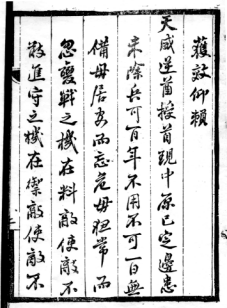 獲效仰賴
天威逆酋授首現中原已定邊患
未除兵可百年不用不可一日無
備毋居安而忘危毋狃常而
忽變戰之機在料敵使敵不
敢進守之機在禦敵使敵不